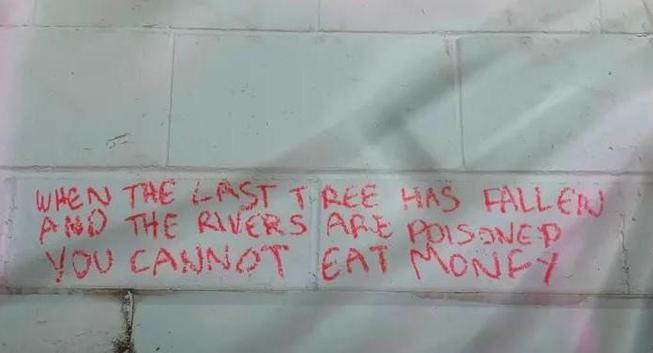 WHEN THE LAST TREE HAS FALLEN
AND THE RIVERS ARE POISONED
YOU CANNOT EAT MONEY